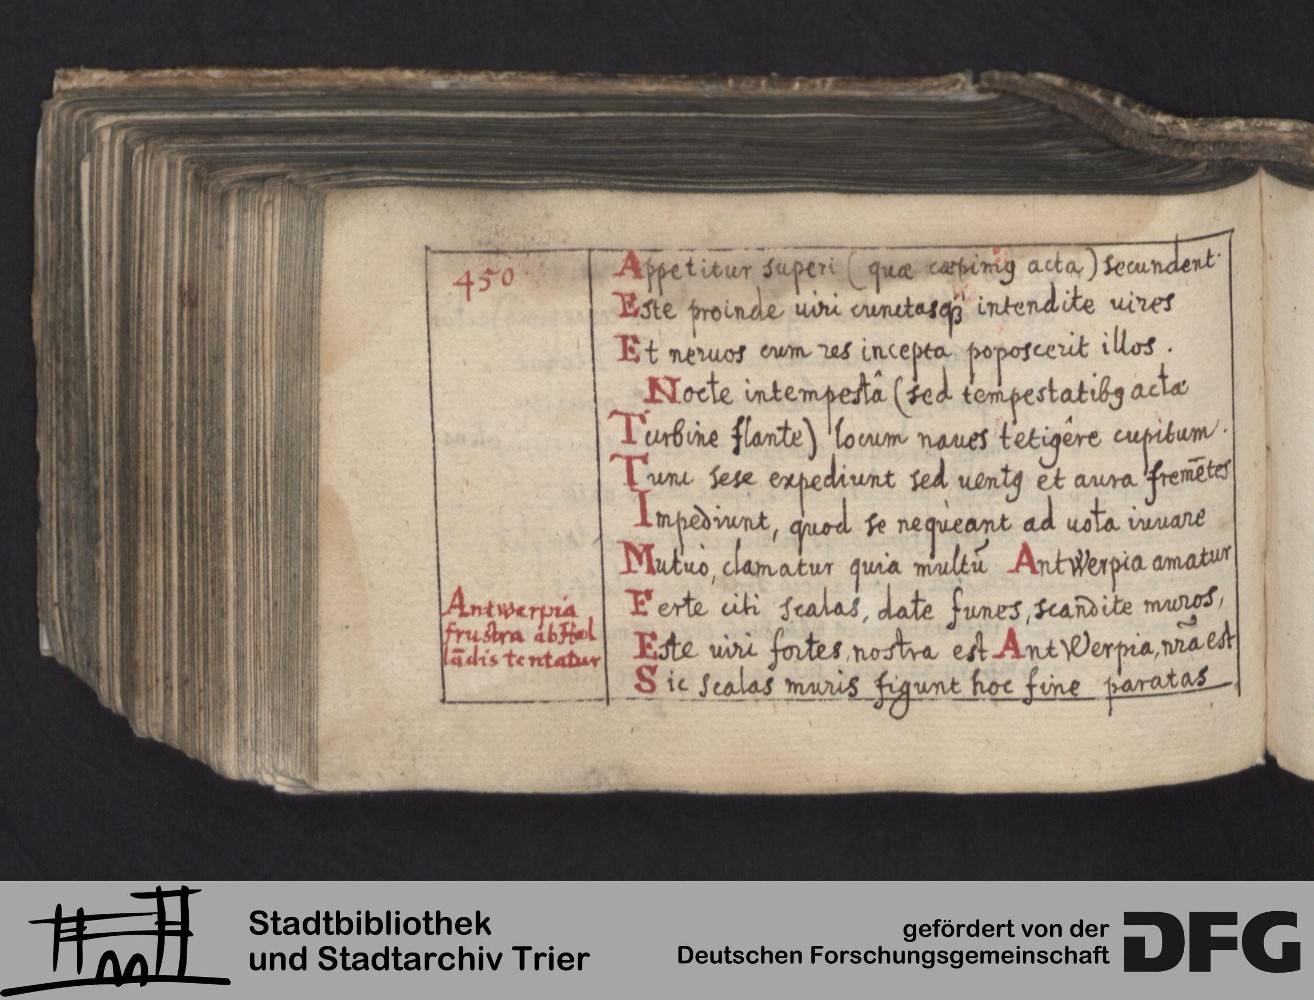 450
Appetitur superi (quæ cæpimg acta) secundent.
Este proinde uiri cunctasq; intendite uires
Et neruos cum res incepta poposcerit illos.
Nocte intempestâ (sed tempestatibg acta
Turbine flante) locum naues tetigêre cupitum.
Tunc sese expediunt sed uentg et aura fremētes
Impediunt, quod se nequeant ad uota iuuare
Mutuo, clamatur quia multū AntWerpia amatur
Ferte citi scalas, date funes, scandite muros,
Este uiri fortes, nostra est AntWerpia, nrā est
Sic scalas muris figunt hoc fine paratas
Antwerpia
frustra ab Hol
lādis tentatur
Stadtbibliothek
und Stadtarchiv Trier
gefördert von der
Deutschen Forschungsgemeinschaft
DFG